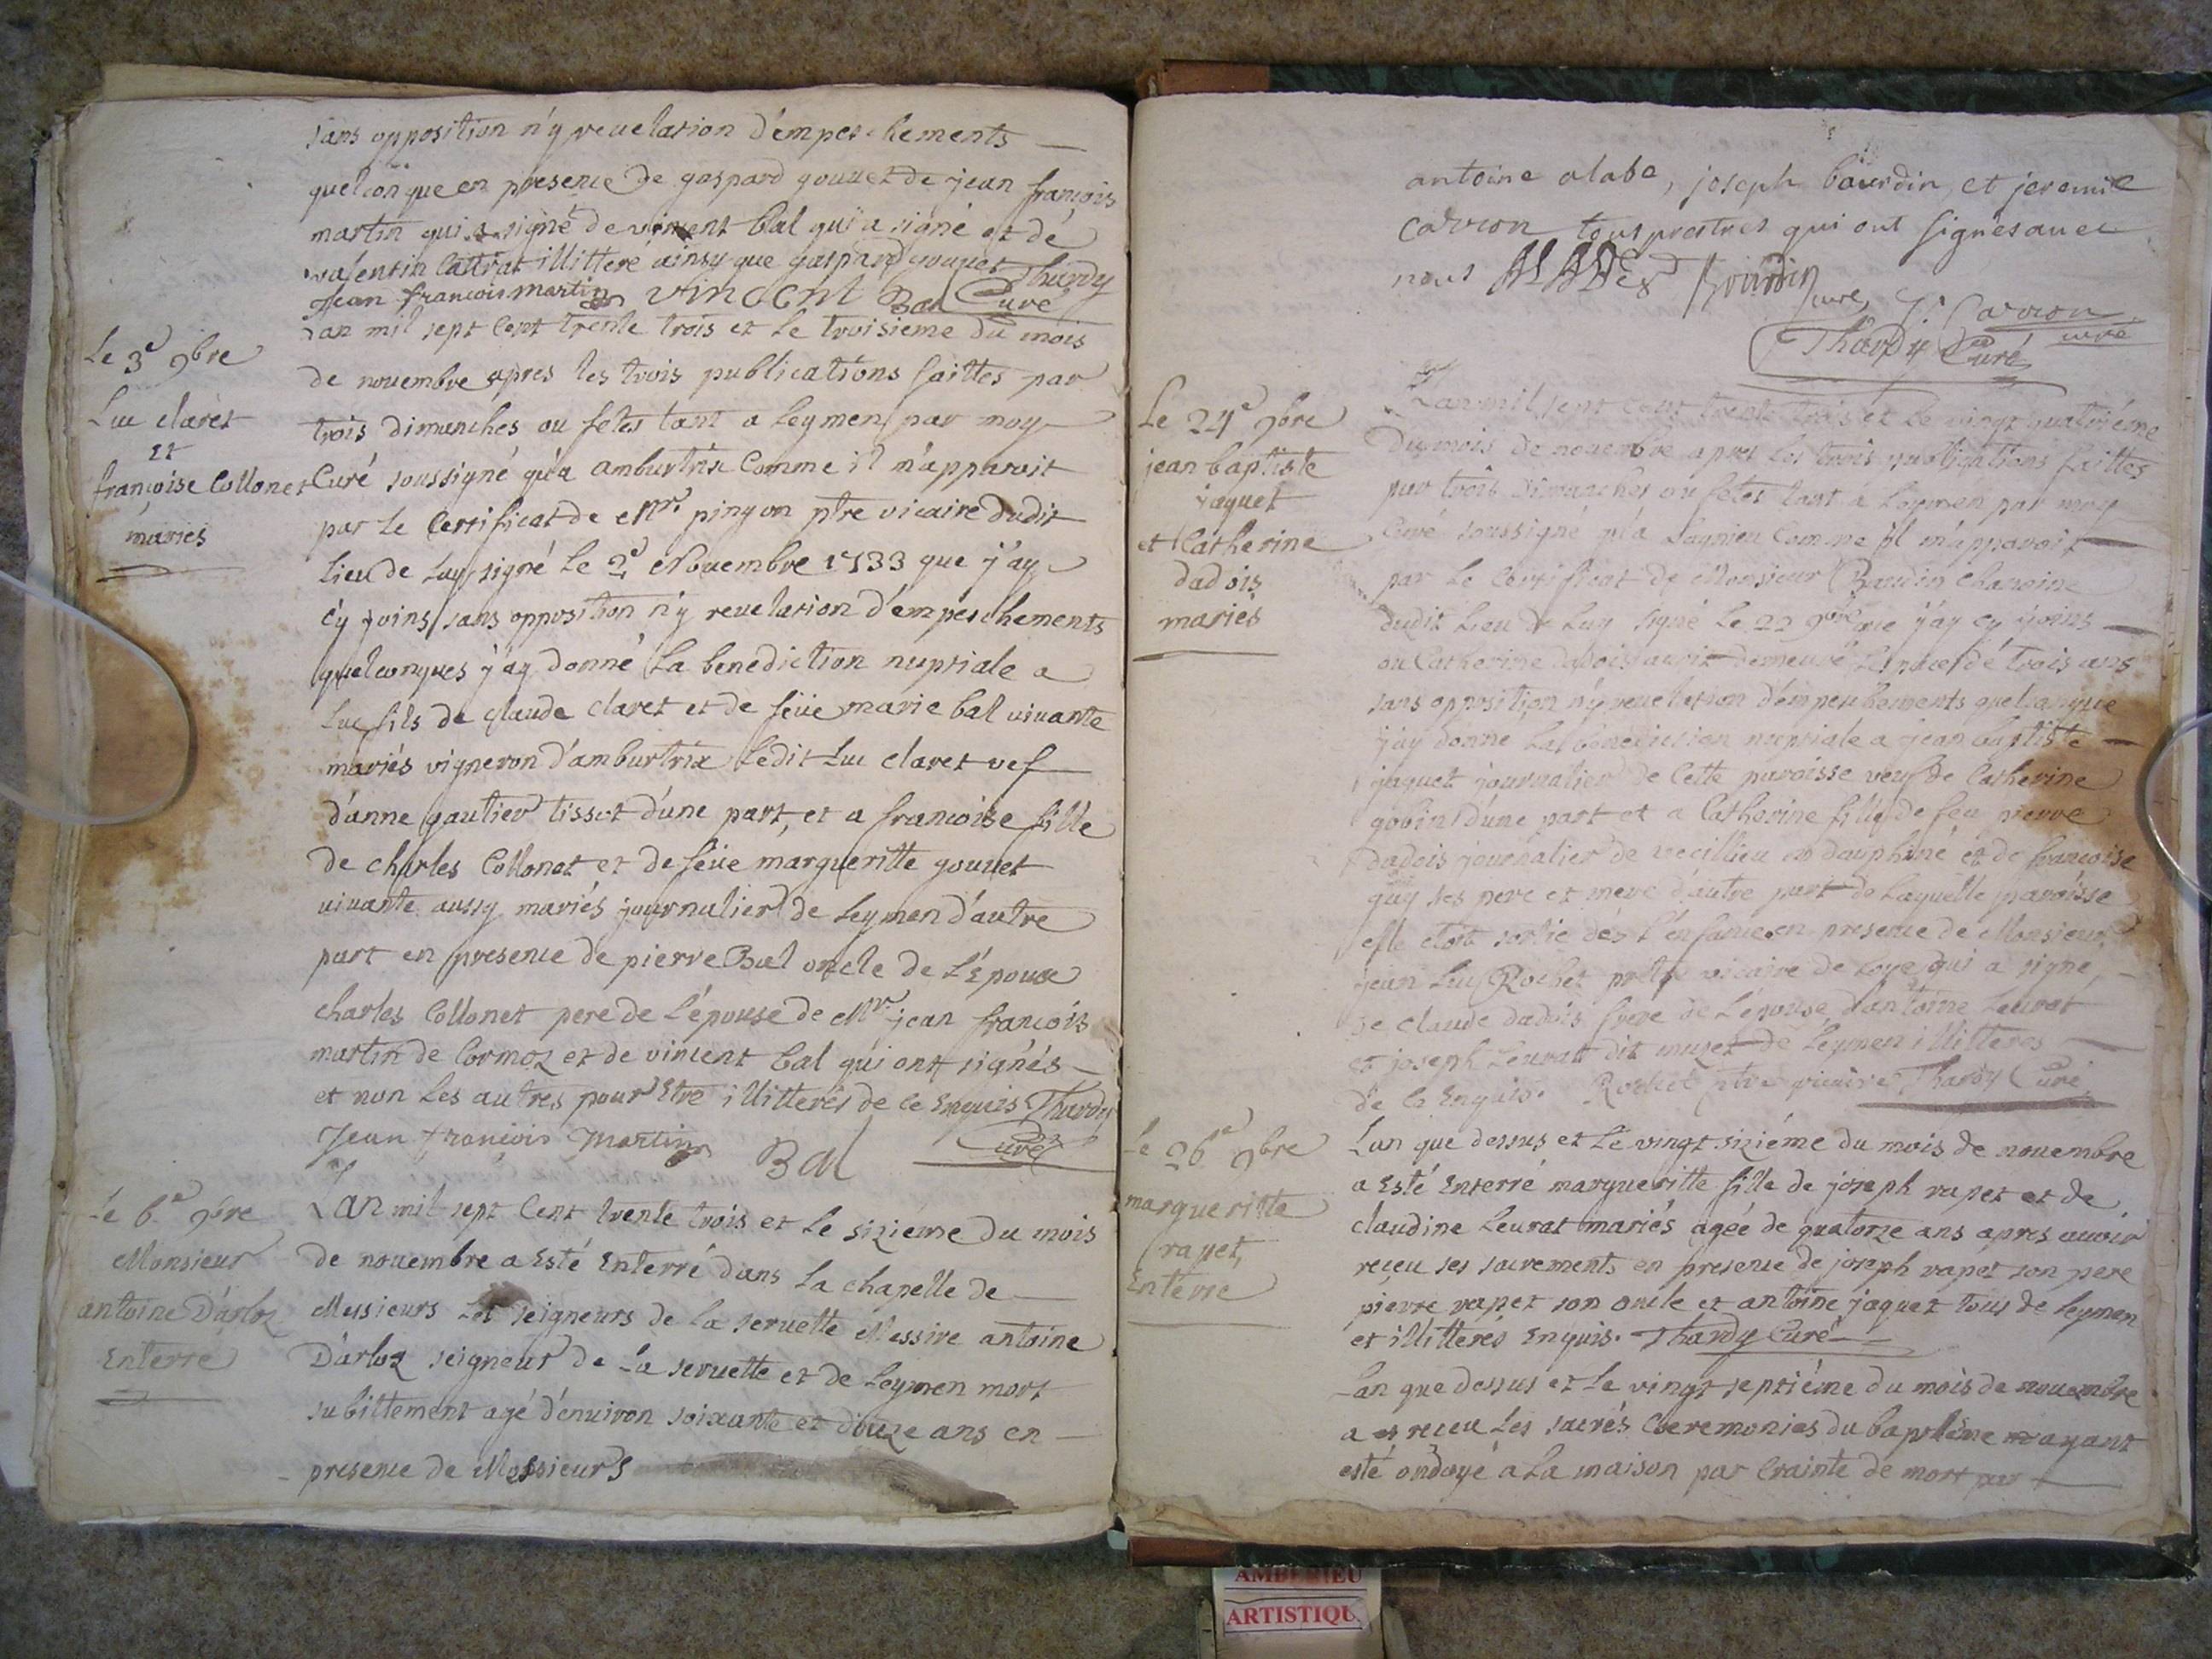 sans opposition n'y reuelation d'empeschements
quelconque en presence de gaspard gouuet de jean françois
martin qui a signé de vincent bal qui a signé et de
valentin Cattrat illitteré ainsy que gaspard gouuet Thardy
Jean francois martin vincent Bal Curé
Le 3e 9bre
Luc claret
et
françoise Collonet
mariés
Lan mil sept Cent trente trois et le troisieme du mois
de nouembre apres les trois publications faittes par
trois dimanches ou fetes tant a Leymen par moy
Curé soussigné qu'a amburtrix Comme il m'apparoit
par Le Certificat de Mr. pingon ptre vicaire dudit
Lieu de Luy signé le 2e Nouembre 1733 que j'ay
cy joins sans opposition n'y reuelation d'empeschements
quelconques j'ay donné La benediction nuptiale a
Luc fils de glaude claret et de feüe marie bal uiuante
mariés vigneron d'amburtrix Ledit Luc claret vef
d'anne gautier tissot d'une part, et a francoise fille
de charles Collonet et de feüe margueritte gouuet
uiuante aussy mariés journalier de Leymen d'autre
part en presence de pierre Bal oncle de L'époux
charles Collonet pere de L'épouse de Mr. jean francois
martin de Cormoz et de vincent bal qui ont signés
et non Les autres pour Etre illitteres de ce Enquis Thardy
Jean françois Martin Bal Curé
Le 6.e 9bre
Monsieur
antoine D'arloz
Enterré
Lan mil sept Cent trente trois et Le siziéme du mois
de nouembre a Esté Enterré dans La chapelle de
Messieurs Les seigneurs de la seruette Messire antoine
D'arloz seigneur de La seruette et de Leymen mort
subittement agé d'enuiron soixante et douze ans en
presence de Messieurs
antoine alabe, joseph bourdin, et jeremie
carron tous prestres qui ont signés auec
nous ALABE Bourdin
curé, J. Carron
Thardy Curé curé
Le 24e 9bre
jean baptiste
jaquet
et Catherine
dadois
mariés
Lan mil sept Cent trente trois et le vingt quatriéme
Du mois de nouembre apres Les trois publications faittes
par trois dimanches ou fetes tant á Leymen par moy
Curé soussigné qu'a Lagnieu Comme il m'apparoit
par Le Certificat de Monsieur Baudin chanoine
dudit Lieu de Luy signé Le 22 9bre que j'ay cy joins
ou Catherine dadois auoit demeuré L'espace de trois ans
sans opposition n'y reuelation d'empeschements quelconque
j'ay donné La benediction nuptiale a jean baptiste
jaquet journalier de Cette paroisse veuf de Catherine
gobin d'une part et a Catherine fille de feu pierre
dadois journalier de vecillieu en dauphiné et de francoise
guy ses pere et mere d'autre part de Laquelle paroisse
elle etoit sortie dés L'enfance en presence de Monsieur
jean Luc Rochet pretre vicaire de Loye qui a signé,
de Claude dadois frere de L'épouse d'antoine Leurat
et joseph Leurat dit muzet de Leymen illitteres
de ce Enquis. Rochet ptre vicaire Thardy Curé
Le 26e 9bre
margueritte
rapet,
Enterré
Lan que dessus et Le vingt siziéme du mois de nouembre
a Esté Enterré margueritte fille de joseph rapet et de
claudine Leurat mariés agée de quatorze ans apres auoir
receu ses sacrements en presence de joseph rapet son pere
pierre rapet son oncle et antoine jaquet tous de Leymen
et illitterés Enquis. Thardy Curé
Lan que dessus et Le vingt septiéme du mois de nouembre
a receu Les sacrés Ceremonies du baptême ayant
esté ondoyé a La maison par Crainte de mort par
AMBERIEU
ARTISTIQU